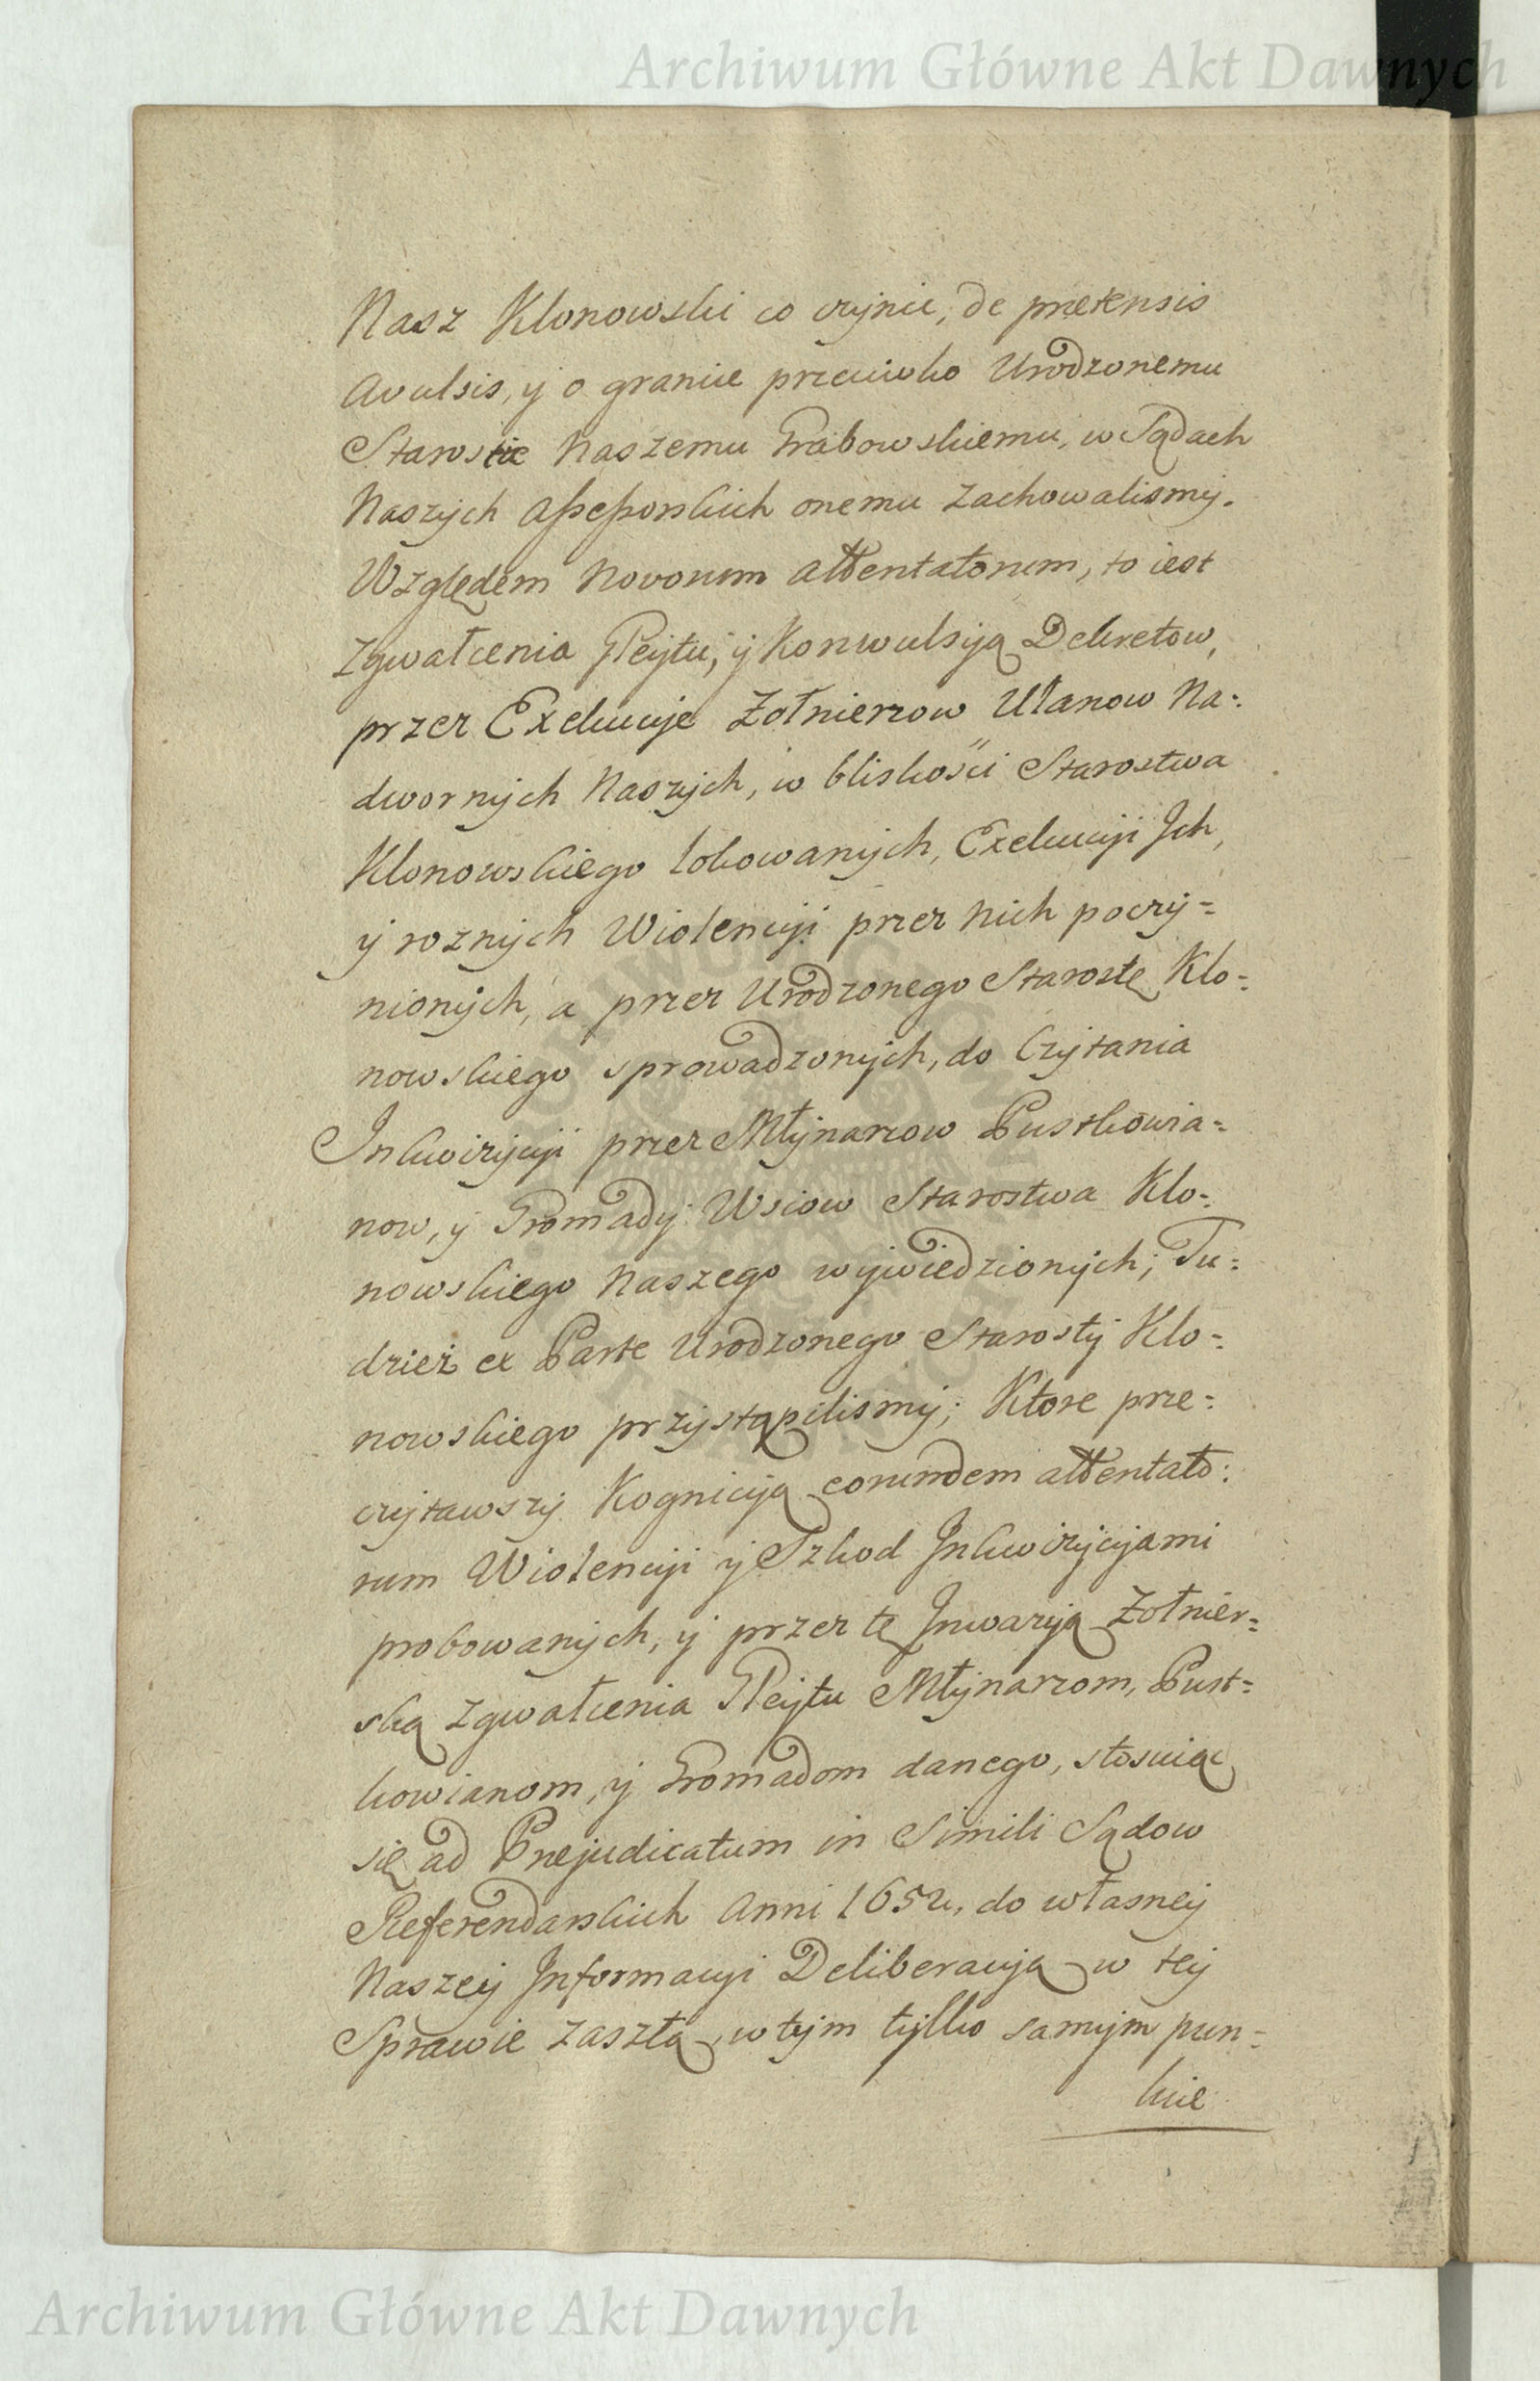 Archiwum Główne Akt Dawnych
Nasz Klonowski co czyni, de prætensis
Avulsis, y o granice przeciwko Urodzonemu
Staroście Naszemu Grabowskiemu, w Sądach
Naszych Assessorskich onemu zachowalismy.
Względem Novorum Attentatorum, to iest
zgwałcenia Glejtu, y Konwulsyą Dekretow,
przez Exekucyę Żołnierzow Ułanow Na=
dwornych Naszych, w bliskości Starostwa
Klonowskiego lokowanych, Exekucyi Ich,
y roznych Wiolencyi przez nich poczy=
nionych, a przez Urodzonego Starostę Klo=
nowskiego sprowadzonych, do Czytania
Inkwizycyi przez Młynarzow Pustkowia=
now, y Gromady Wsiow Starostwa Klo=
nowskiego Naszego wywiedzionych; Tu=
dzież ex Parte Urodzonego Starosty Klo=
nowskiego przystąpilismy; Ktore prze=
czytawszy Kognicyą eorumdem attentato=
rum Wiolencyi y Szkod Inkwizycyjami
probowanych, y przez tę Inwazyą Żołnier=
ską zgwałcenia Glejtu Młynarzom, Pust=
kowianom, y Gromadom danego, stosuiąc
się ad Præjudicatum in Simili Sądow
Referendarskich Anni 1652, do własney
Naszey Informacyi Deliberacyą w tey
Sprawie zaszłą, w tym tylko samym pun=
kcie
Archiwum Główne Akt Dawnych